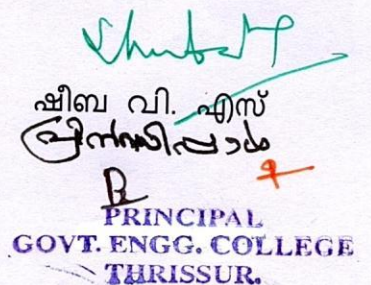 ഷീബ വി. എസ്
പ്രിൻസിപ്പാൾ
PRINCIPAL
GOVT. ENGG. COLLEGE
THRISSUR.